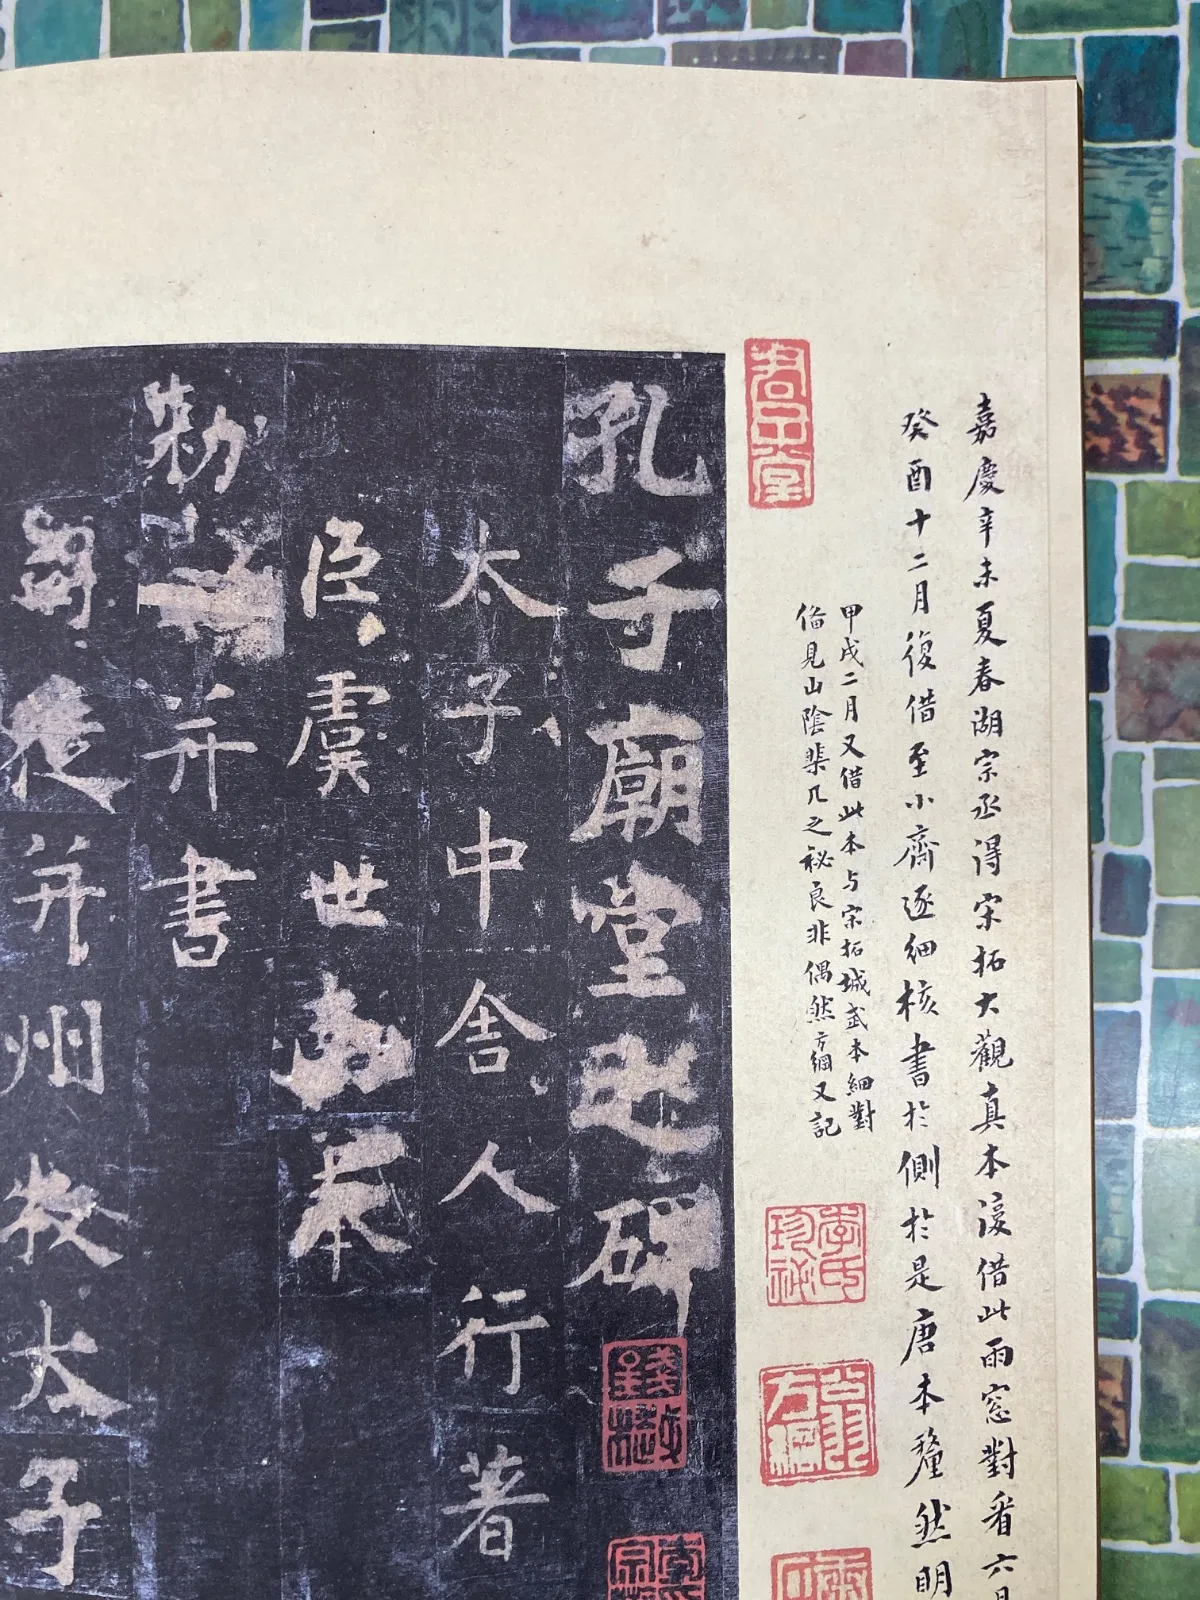 嘉慶辛未夏春湖宗丞得宋拓大觀真本復借此雨窓對看六月
癸酉十二月復借至小齋逐細核書於側於是唐本釐然明
甲戌二月又借此本与宋拓城武本細對
偹見山陰棐几之祕良非偶然方綱又記
李氏珍祕
翁方綱
孔子廟堂之碑
太子中舍人行著
臣虞世南奉
勅
并書
司徒并州牧太子